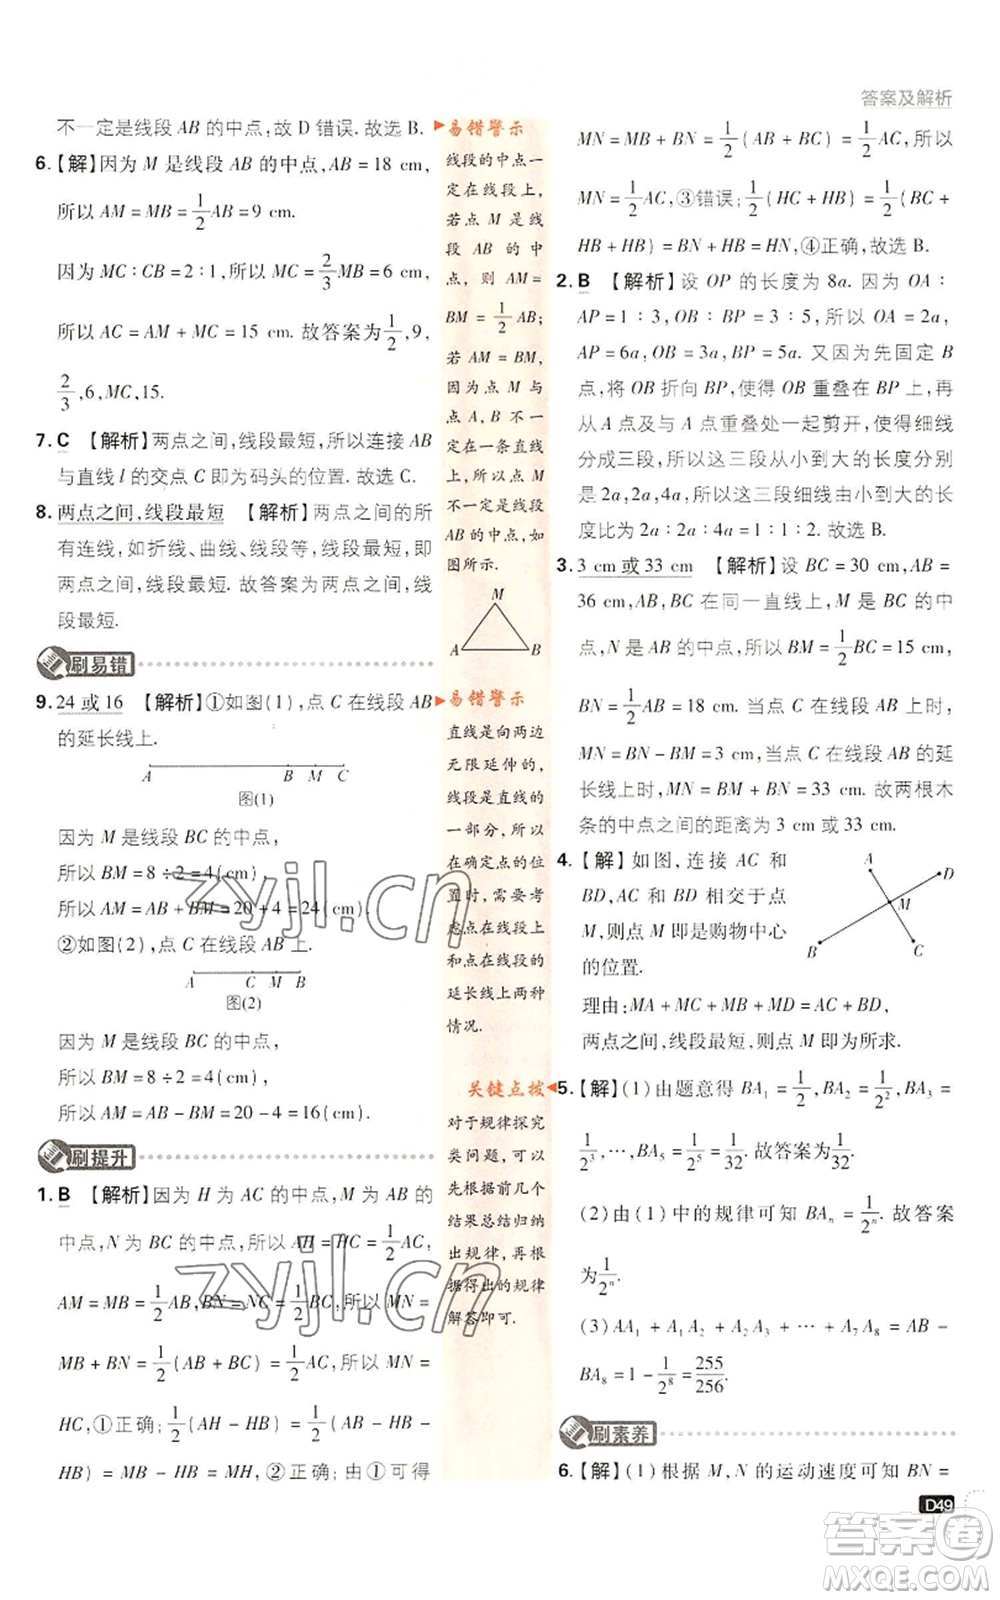 答案及解析
不一定是线段 AB 的中点,故 D 错误.故选 B.
6.【解】因为 M 是线段 AB 的中点,AB = 18 cm,
所以 AM = MB = 1/2 AB = 9 cm.
因为 MC : CB = 2 : 1,所以 MC = 2/3 MB = 6 cm,
所以 AC = AM + MC = 15 cm. 故答案为 1/2,9,
2/3,6,MC,15.
7. C 【解析】两点之间,线段最短,所以连接 AB
与直线 l 的交点 C 即为码头的位置.故选 C.
8. 两点之间,线段最短 【解析】两点之间的所
有连线,如折线、曲线、线段等,线段最短,即
两点之间,线段最短. 故答案为两点之间,线
段最短.
刷易错
9. 24 或 16 【解析】①如图(1),点 C 在线段 AB
的延长线上.
A B M C
图(1)
因为 M 是线段 BC 的中点,
所以 BM = 8 ÷ 2 = 4(cm),
所以 AM = AB + BM = 20 + 4 = 24(cm).
②如图(2),点 C 在线段 AB 上.
A C M B
图(2)
因为 M 是线段 BC 的中点,
所以 BM = 8 ÷ 2 = 4(cm),
所以 AM = AB - BM = 20 - 4 = 16(cm).
刷提升
1. B 【解析】因为 H 为 AC 的中点,M 为 AB 的
中点,N 为 BC 的中点,所以 AH = HC = 1/2 AC,
AM = MB = 1/2 AB,BN = NC = 1/2 BC,所以 MN =
MB + BN = 1/2 (AB + BC) = 1/2 AC,所以 MN =
HC,①正确;1/2 (AH - HB) = 1/2 (AB - HB -
HB) = MB - HB = MH,②正确;由①可得
易错警示
线段的中点一
定在线段上,
若点 M 是线
段 AB 的中
点, 则 AM =
BM = 1/2 AB;
若 AM = BM,
因为点 M 与
点 A,B 不一
定在一条直线
上,所以点 M
不一定是线段
AB 的中点,如
图所示.
M
A B
易错警示
直线是向两边
无限延伸的,
线段是直线的
一部分,所以
在确定点的位
置时,需要考
虑点在线段上
和点在线段的
延长线上两种
情况.
关键点拨
对于规律探究
类问题,可以
先根据前几个
结果总结归纳
出规律,再根
据得出的规律
解答即可.
MN = MB + BN = 1/2 (AB + BC) = 1/2 AC,所以
MN = 1/2 AC,③错误;1/2 (HC + HB) = 1/2 (BC +
HB + HB) = BN + HB = HN,④正确,故选 B.
2. B 【解析】设 OP 的长度为 8a. 因为 OA :
AP = 1 : 3,OB : BP = 3 : 5,所以 OA = 2a,
AP = 6a,OB = 3a,BP = 5a. 又因为先固定 B
点,将 OB 折向 BP,使得 OB 重叠在 BP 上,再
从 A 点及与 A 点重叠处一起剪开,使得细线
分成三段,所以这三段从小到大的长度分别
是 2a,2a,4a,所以这三段细线由小到大的长
度比为 2a : 2a : 4a = 1 : 1 : 2. 故选 B.
3. 3 cm 或 33 cm 【解析】设 BC = 30 cm,AB =
36 cm,AB,BC 在同一直线上,M 是 BC 的中
点,N 是 AB 的中点,所以 BM = 1/2 BC = 15 cm,
BN = 1/2 AB = 18 cm. 当点 C 在线段 AB 上时,
MN = BN - BM = 3 cm;当点 C 在线段 AB 的延
长线上时,MN = BM + BN = 33 cm. 故两根木
条的中点之间的距离为 3 cm 或 33 cm.
4.【解】如图,连接 AC 和
BD,AC 和 BD 相交于点
M,则点 M 即是购物中心
的位置.
A D M B C
理由:MA + MC + MB + MD = AC + BD,
两点之间,线段最短,点 M 即为所求.
5.【解】(1)由题意得 BA₁ = 1/2,BA₂ = 1/2²,BA₃ =
1/2³,…,BA₅ = 1/2⁵ = 1/32. 故答案为 1/32.
(2)由(1)中的规律可知 BAₙ = 1/2ⁿ. 故答案
为 1/2ⁿ.
(3)AA₁ + A₁A₂ + A₂A₃ + … + A₇A₈ = AB -
BA₈ = 1 - 1/2⁸ = 255/256.
刷素养
6.【解】(1)根据 M,N 的运动速度可知 BN =
D49
zyjl.cn
zyjl.cn
答案圈
MXQE.COM